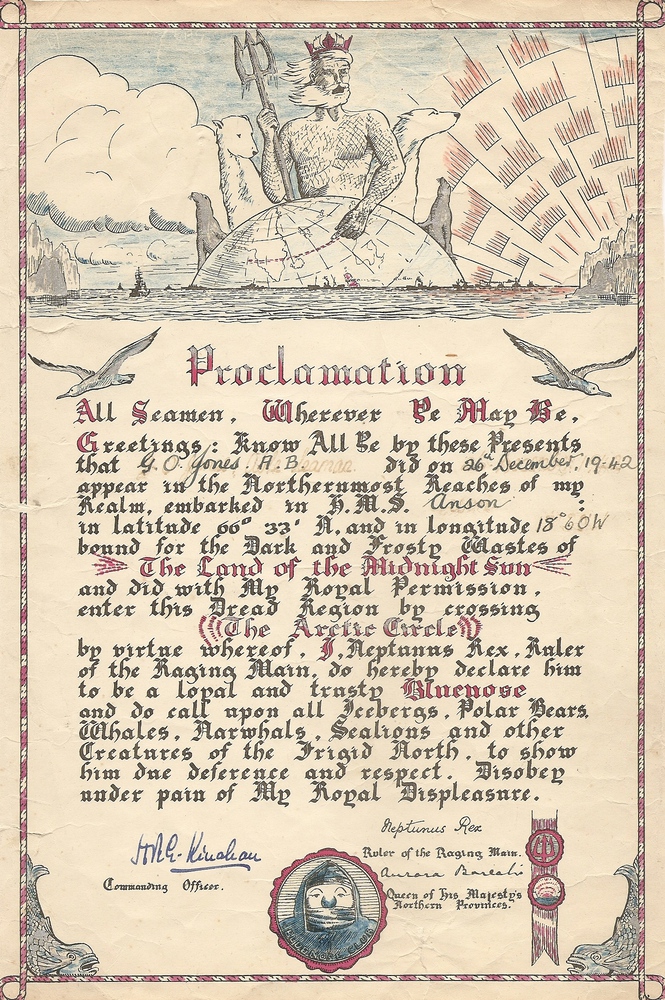 Proclamation
All Seamen, Wherever Ye May Be,
Greetings: Know All Ye by these Presents
that G. O. Jones A.B. did on 26th December, 1942
appear in the Northernmost Reaches of my
Realm, embarked in H.M.S. Anson :
in latitude 66° 33' N, and in longitude 18° 60W
bound for the Dark and Frosty Wastes of
The Land of the Midnight Sun
and did with My Royal Permission,
enter this Dread Region by crossing
The Arctic Circle
by virtue whereof, I, Neptunus Rex, Ruler
of the Raging Main, do hereby declare him
to be a loyal and trusty Bluenose
and do call upon all Icebergs, Polar Bears,
Whales, Narwhals, Sealions and other
Creatures of the Frigid North, to show
him due deference and respect. Disobey
under pain of My Royal Displeasure.
Neptunus Rex
Ruler of the Raging Main.
H.R.G. Kinahan
Commanding Officer.
Aurora Borealis
Queen of His Majesty's
Northern Provinces.
BLUENOSE CLUB